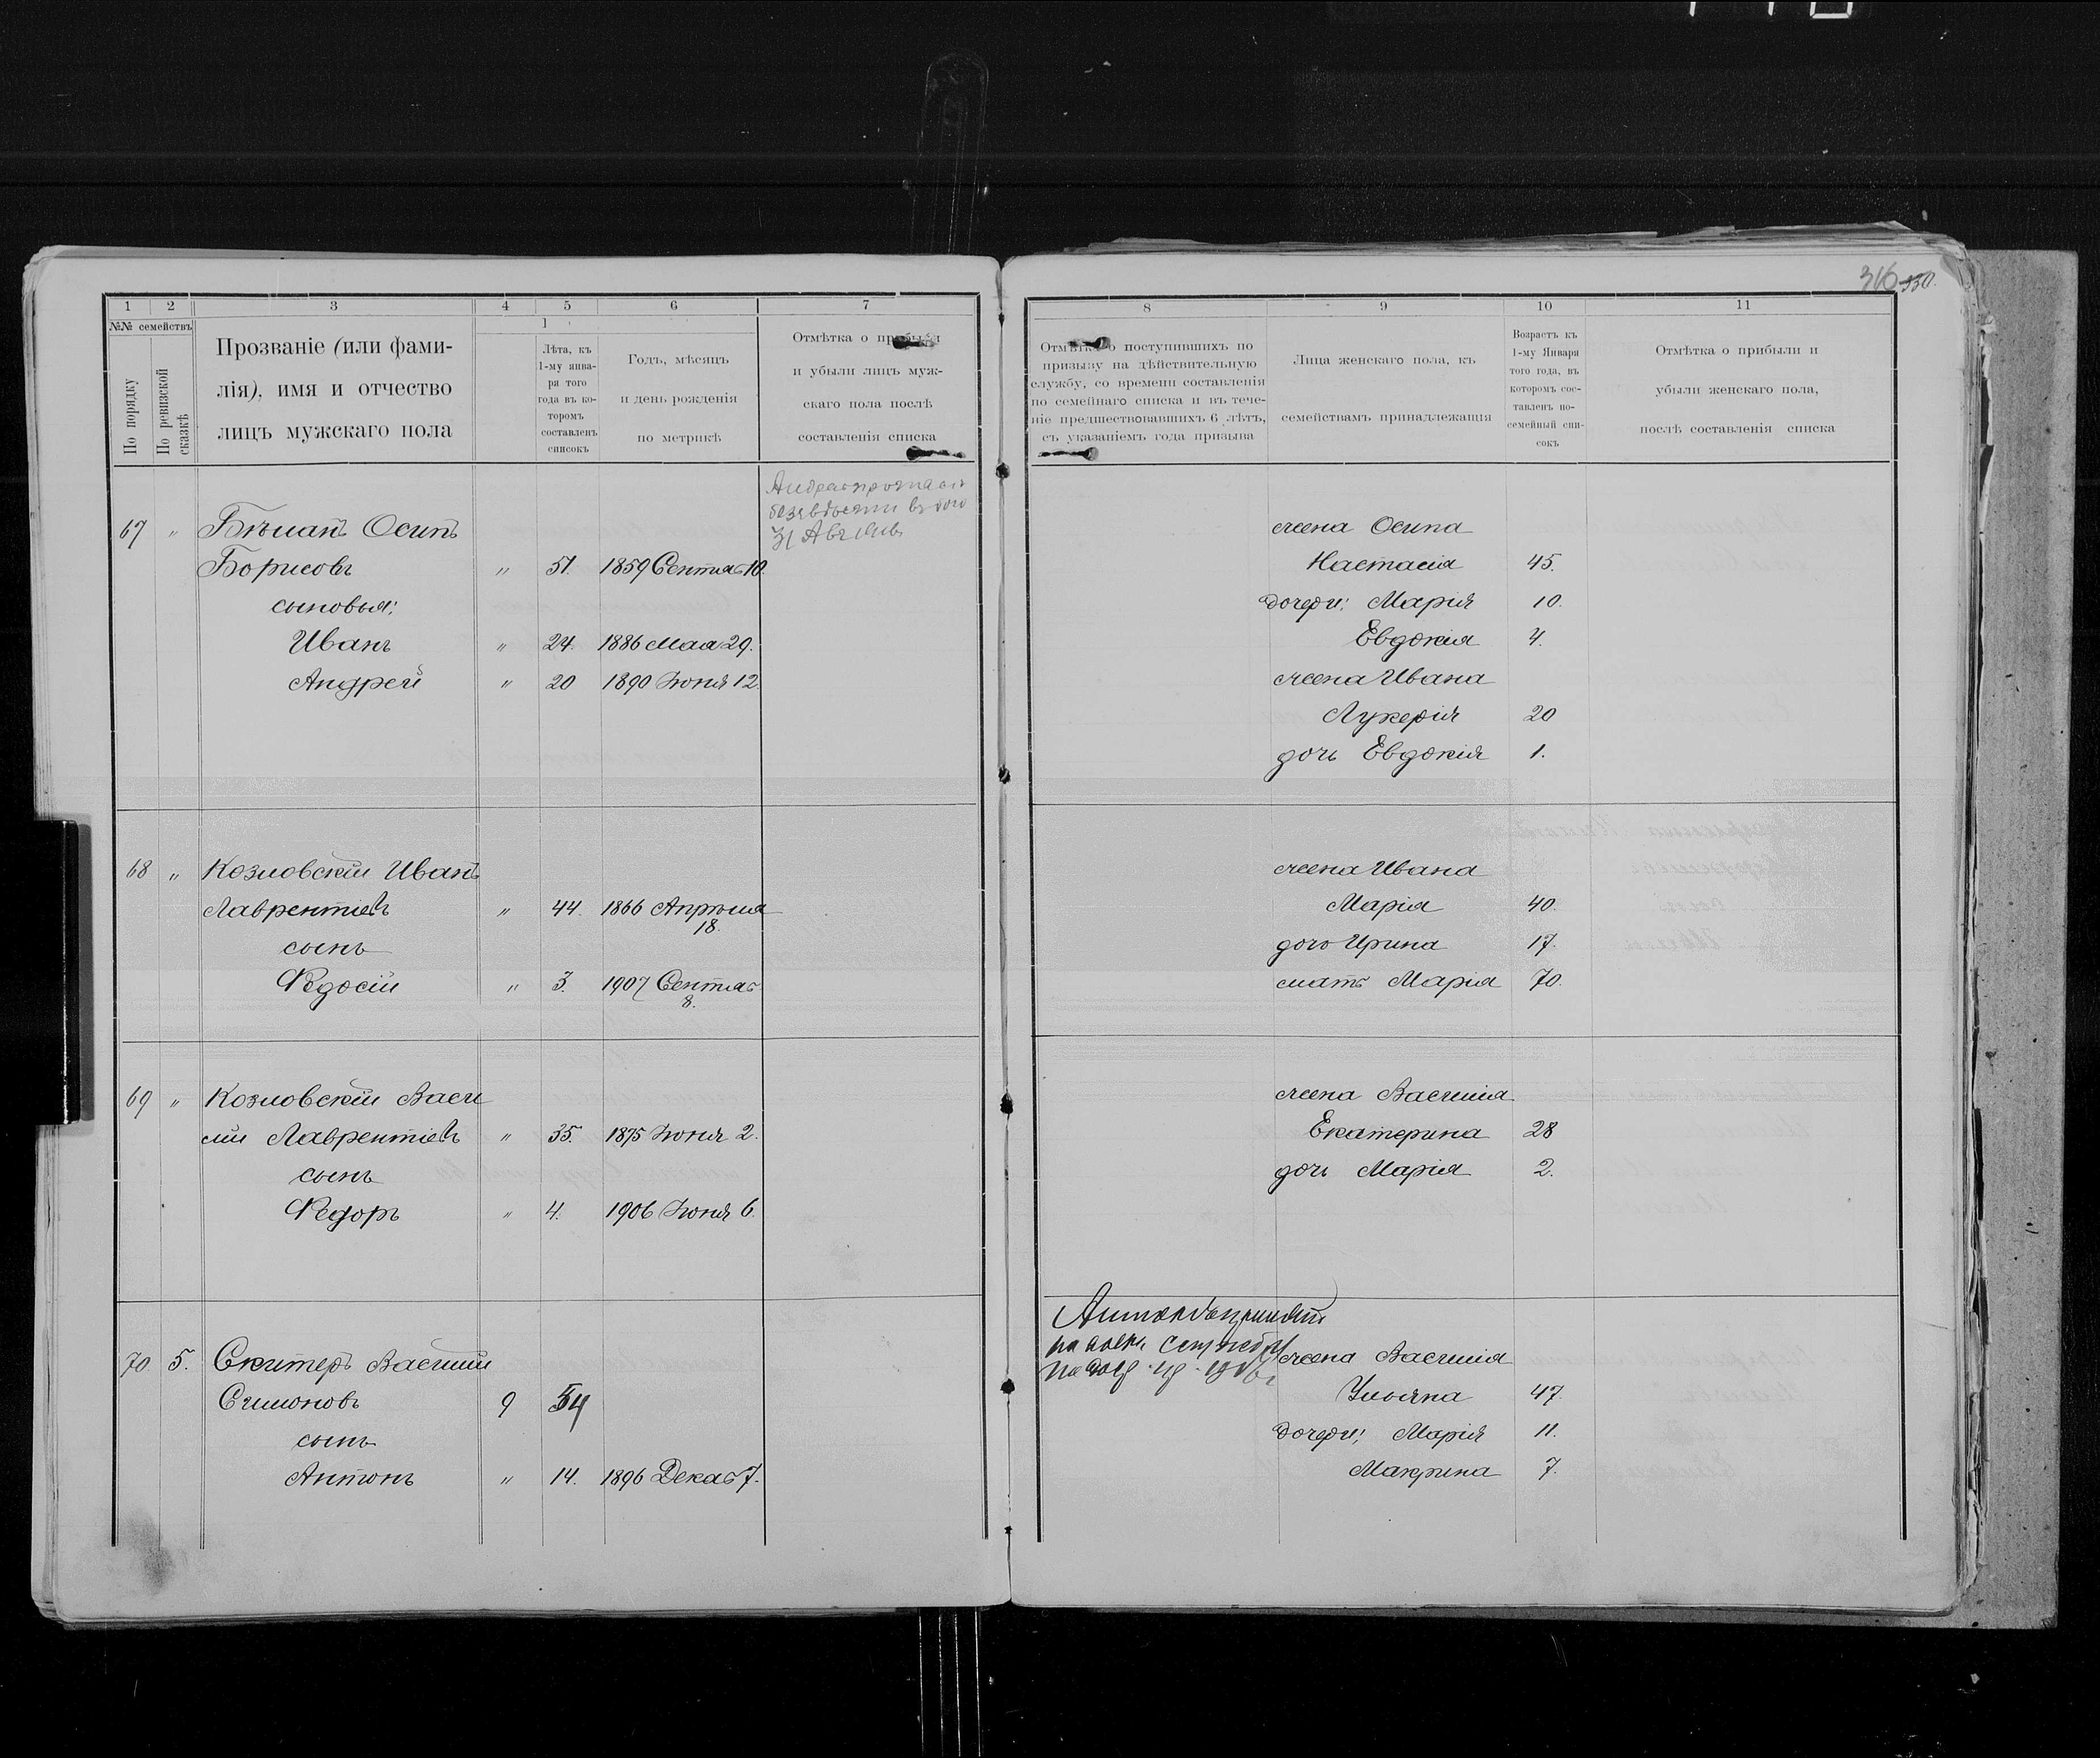 316 330.
1 2 3 4 5 6 7
№№ семействъ
По порядку
По ревизской сказкѣ
Прозваніе (или фами-
лія), имя и отчество
лицъ мужскаго пола
Лѣта, къ
1-му янва-
ря того
года въ ко-
торомъ
составленъ
списокъ
Годъ, мѣсяцъ
и день рожденія
по метрикѣ
Отмѣтка о прибыли
и убыли лицъ муж-
скаго пола послѣ
составленія списка
8 9 10 11
Отмѣтка о поступившихъ по
призыву на дѣйствительную
службу, со времени составленія
по семейнаго списка и въ тече-
ніе предшествовавшихъ 6 лѣтъ,
съ указаніемъ года призыва
Лица женскаго пола, къ
семействамъ принадлежащія
Возрастъ къ
1-му Января
того года, въ
которомъ сос-
тавленъ по-
семейный спи-
сокъ
Отмѣтка о прибыли и
убыли женскаго пола,
послѣ составленія списка
67 " Осипъ
Борисовъ " 51. 1859 Сентяб 10.
сыновья:
Иванъ " 24. 1886 Мая 29.
Андрей " 20 1890 Іюня 12.
жена Осипа
Настасія 45.
дочери: Марія 10.
Евдокія 4.
жена Ивана
Лукерія 20
дочь Евдокія 1.
68 " Козловскій Иванъ
Лаврентіев " 44. 1866 Апрѣля
18.
сынъ
Федосій " 3. 1907 Сентяб
8.
жена Ивана
Марія 40.
дочь Ирина 17.
мать Марія 70.
69 " Козловскій Васи
лій Лаврентіев " 35. 1875 Іюня 2.
сынъ
Федоръ " 4. 1906 Іюня 6.
жена Василія
Екатерина 28
дочь Марія 2.
70 5. Скитеръ Василій
Симоновъ 9 54
сынъ
Антонъ " 14. 1896 Декаб 7.
на службу
жена Василія
Ульяна 47.
дочери; Марія 11.
Макрина 7.